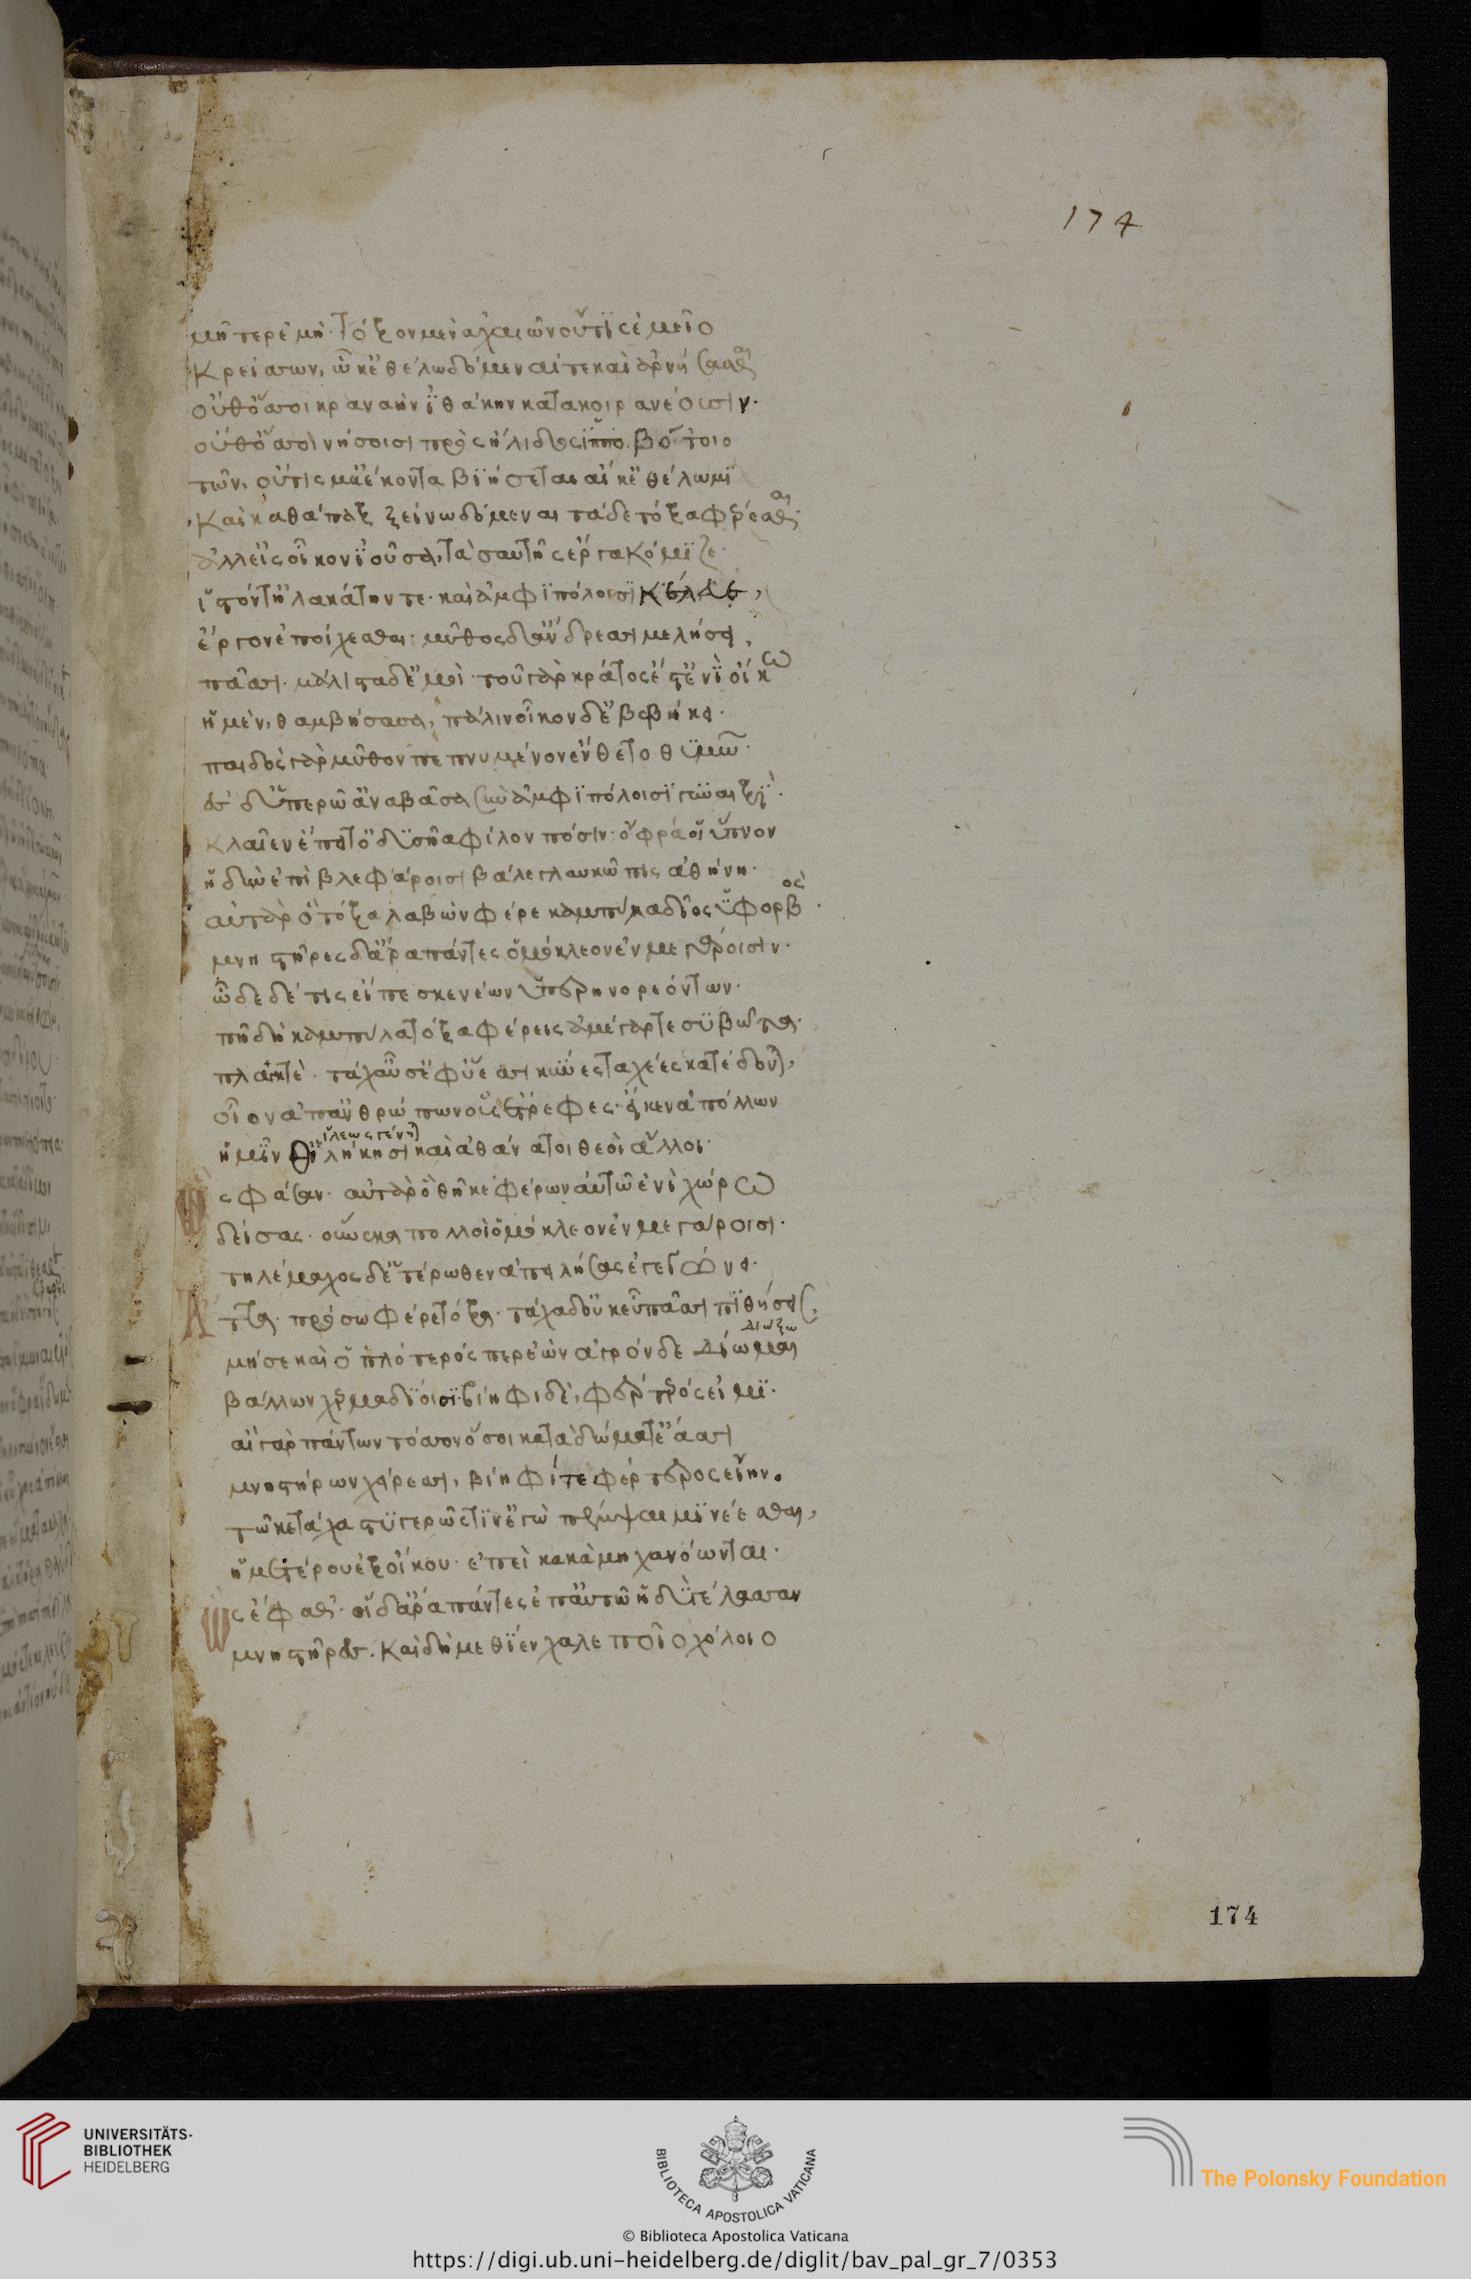 174
μῆτερ ἐμὴ· τόξον μὲν ἀχαιῶν οὔτις ἐμεῖο
κρείσσων, ὧ κ' ἐθέλω δόμεναί τε καὶ ἀρνήσασθαι
οὔθ' ὅσσοι κραναὴν ἰθάκην κάτα κοιρανέουσιν·
οὔθ' ὅσσοι νήσοισι πρὸς ἤλιδος ἱπποβότοιο
τῶν, οὔτίς μ' ἀέκοντα βιήσεται αἴ κ' ἐθέλωμι
καὶ καθάπαξ ξείνω δόμεναι τάδε τόξα φέρεσθαι·
ἀλλ' εἰς οἶκον ἰοῦσα, τὰ σαυτῆς ἔργα κόμιζε·
ἱστόν τ' ἠλακάτην τε· καὶ ἀμφιπόλοισι κέλευε,
ἔργον ἐποίχεσθαι· μῦθος δ' ἄνδρεσσι μελήσει,
πᾶσι· μάλιστα δ' ἐμοὶ· τοῦ γὰρ κράτος ἔστ' ἐνὶ οἴκω
ἡ μὲν, θαμβήσασα, πάλιν οἶκον δὲ βεβήκει·
παιδὸς γὰρ μῦθον πεπνυμένον ἔνθετο θυμῶ·
ἐς δ' ὑπερῶ' ἀναβᾶσα σὺν ἀμφιπόλοισι γυναιξὶ·
κλαῖεν ἔπειτ' ὀδυσῆα φίλον πόσιν· ὄφρά οἱ ὕπνον
ἡδὺν ἐπὶ βλεφάροισι βάλε γλαυκῶπις ἀθήνη·
αὐτὰρ ὁ τόξα λαβὼν φέρε καμπύλα δῖος ὑφορβὸς·
μνηστῆρες δ' ἄρα πάντες ὁμόκλεον ἐν μεγάροισιν·
ὧδε δέ τις εἴπεσκε νέων ὑπερηνορεόντων·
πῆ δὴ καμπύλα τόξα φέρεις ἀμέγαρτε συβῶτα·
πλαγκτὲ· τάχ' αὖ σ' ἐφ' ὕεσσι κύνες ταχέες κατέδονται,
οἶον ἀπ' ἀνθρώπων οὓς ἔτρεφες· εἴ κεν ἀπόλλων
ἵλεως γένηται
ἡμῖν ἱλήκησι καὶ ἀθάνατοι θεοὶ ἄλλοι·
Ὣς φάσαν· αὐτὰρ ὁ θῆκε φέρων αὐτῶ ἐνὶ χώρω
δείσας· οὕνεκα πολλοὶ ὁμόκλεον ἐν μεγάροισι·
τηλέμαχος δ' ἑτέρωθεν ἀπειλήσας ἐγεγώνει·
Ἄττα· πρόσω φέρε τόξα· τάχα δ' οὐκ εὖ πᾶσι πιθήσεις,
διώξω
μή σε καὶ ὁπλότερός περ ἐὼν ἀγρόνδε δίωμαι
βάλλων χερμαδίοισι· βίηφι δὲ, φέρτερός εἰμι·
αἲ γὰρ πάντων τόσσον ὅσοι κατὰ δώματ' ἔασι
μνηστήρων χείρεσσι, βίηφί τε φέρτερος εἴην.
τῶ κε τάχα στυγερῶς τιν' ἐγὼ πέμψαιμι νέεσθαι,
ἡμετέρου ἐξ οἴκου· ἐπεὶ κακὰ μηχανόωνται·
Ὣς ἔφαθ'· οἱ δ' ἄρα πάντες ἐπ' αὐτῶ ἡδὺ γέλασσαν
μνηστῆρες. καὶ δὴ μέθιεν χαλεποῖο χόλοιο
174
UNIVERSITÄTS-
BIBLIOTHEK
HEIDELBERG
BIBLIOTECA APOSTOLICA VATICANA
The Polonsky Foundation
© Biblioteca Apostolica Vaticana
https://digi.ub.uni-heidelberg.de/diglit/bav_pal_gr_7/0353